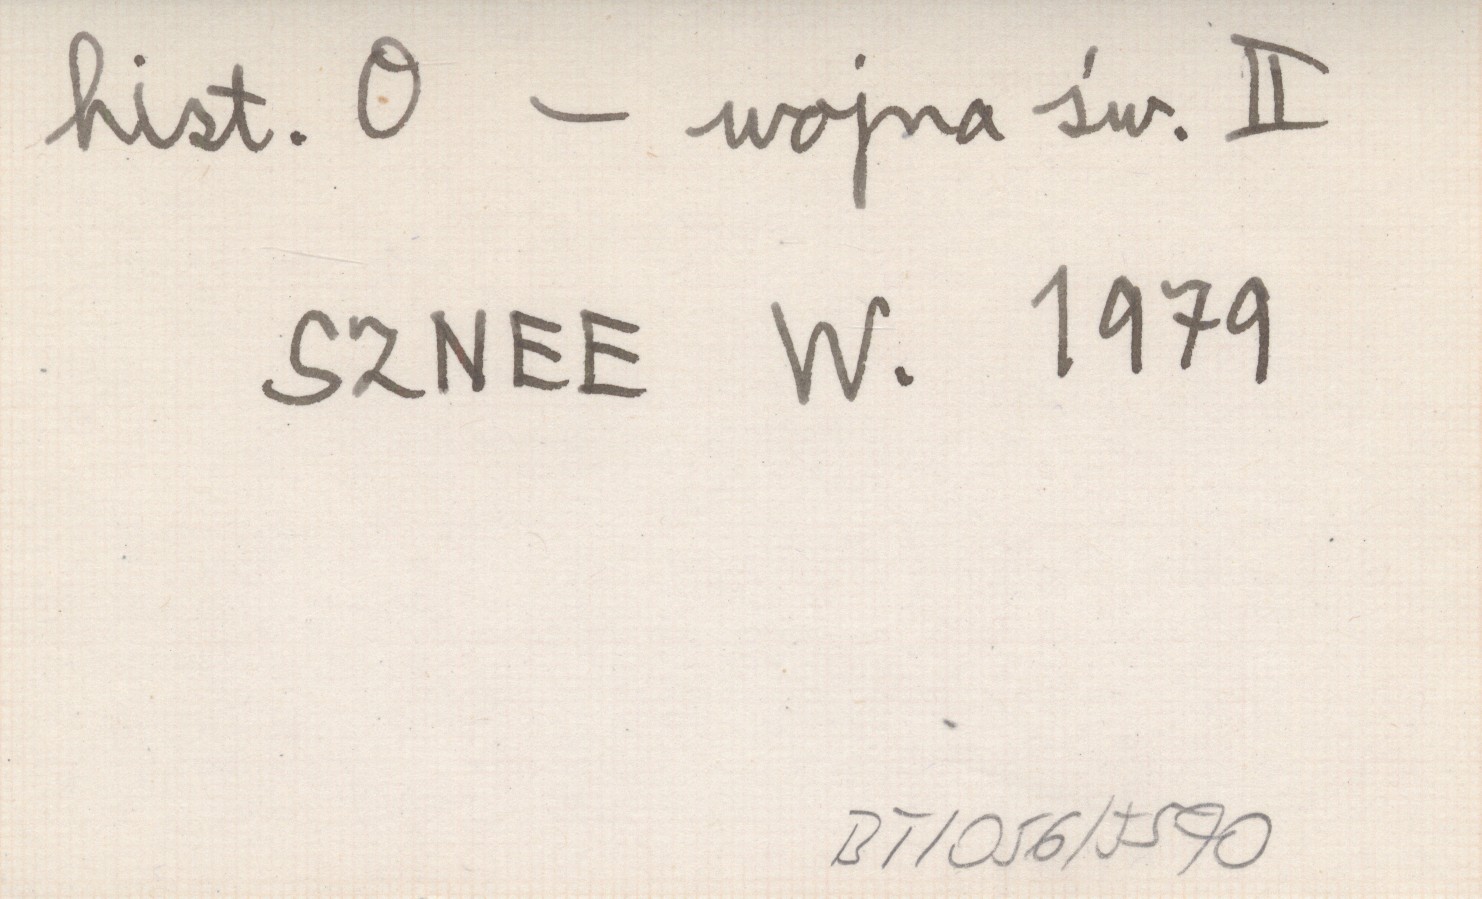 hist. O – wojna św. II
SZNEE W. 1979
BT/056/5590